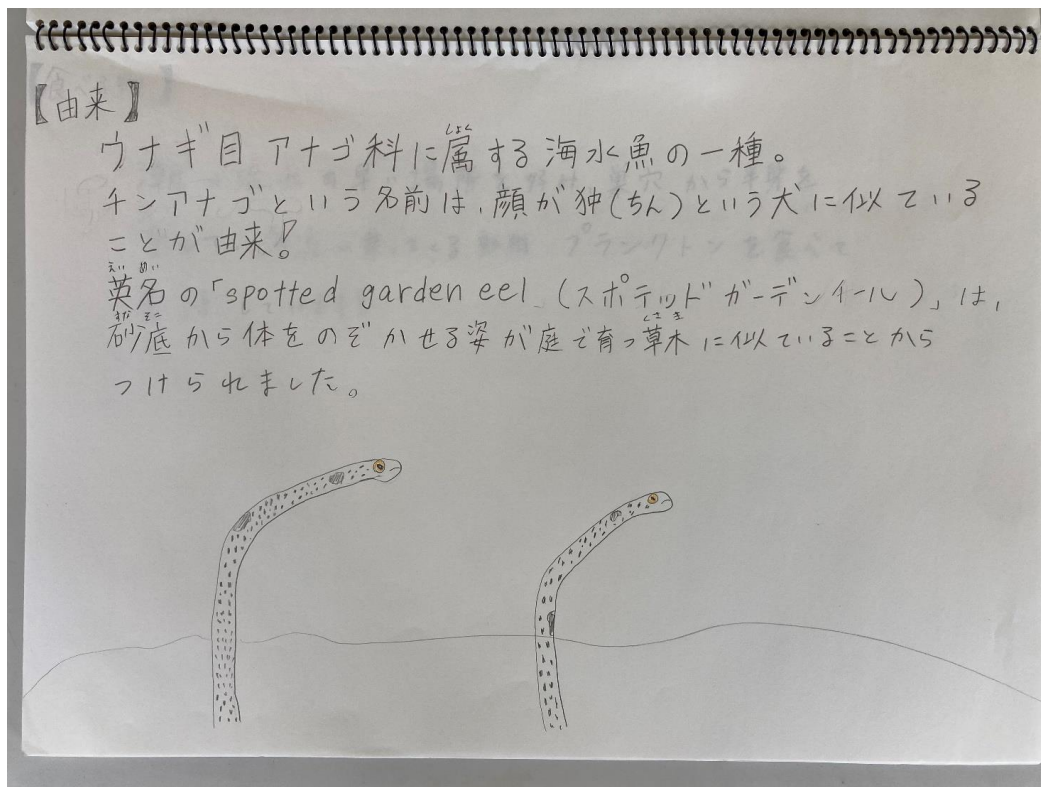 【由来】
ウナギ目アナゴ科に属する海水魚の一種。
チンアナゴという名前は、顔が狆(ちん)という犬に似ている
ことが由来!
英名の「spotted garden eel (スポテッドガーデンイール)」は、
砂底から体をのぞかせる姿が庭で育つ草木に似ていることから
つけられました。